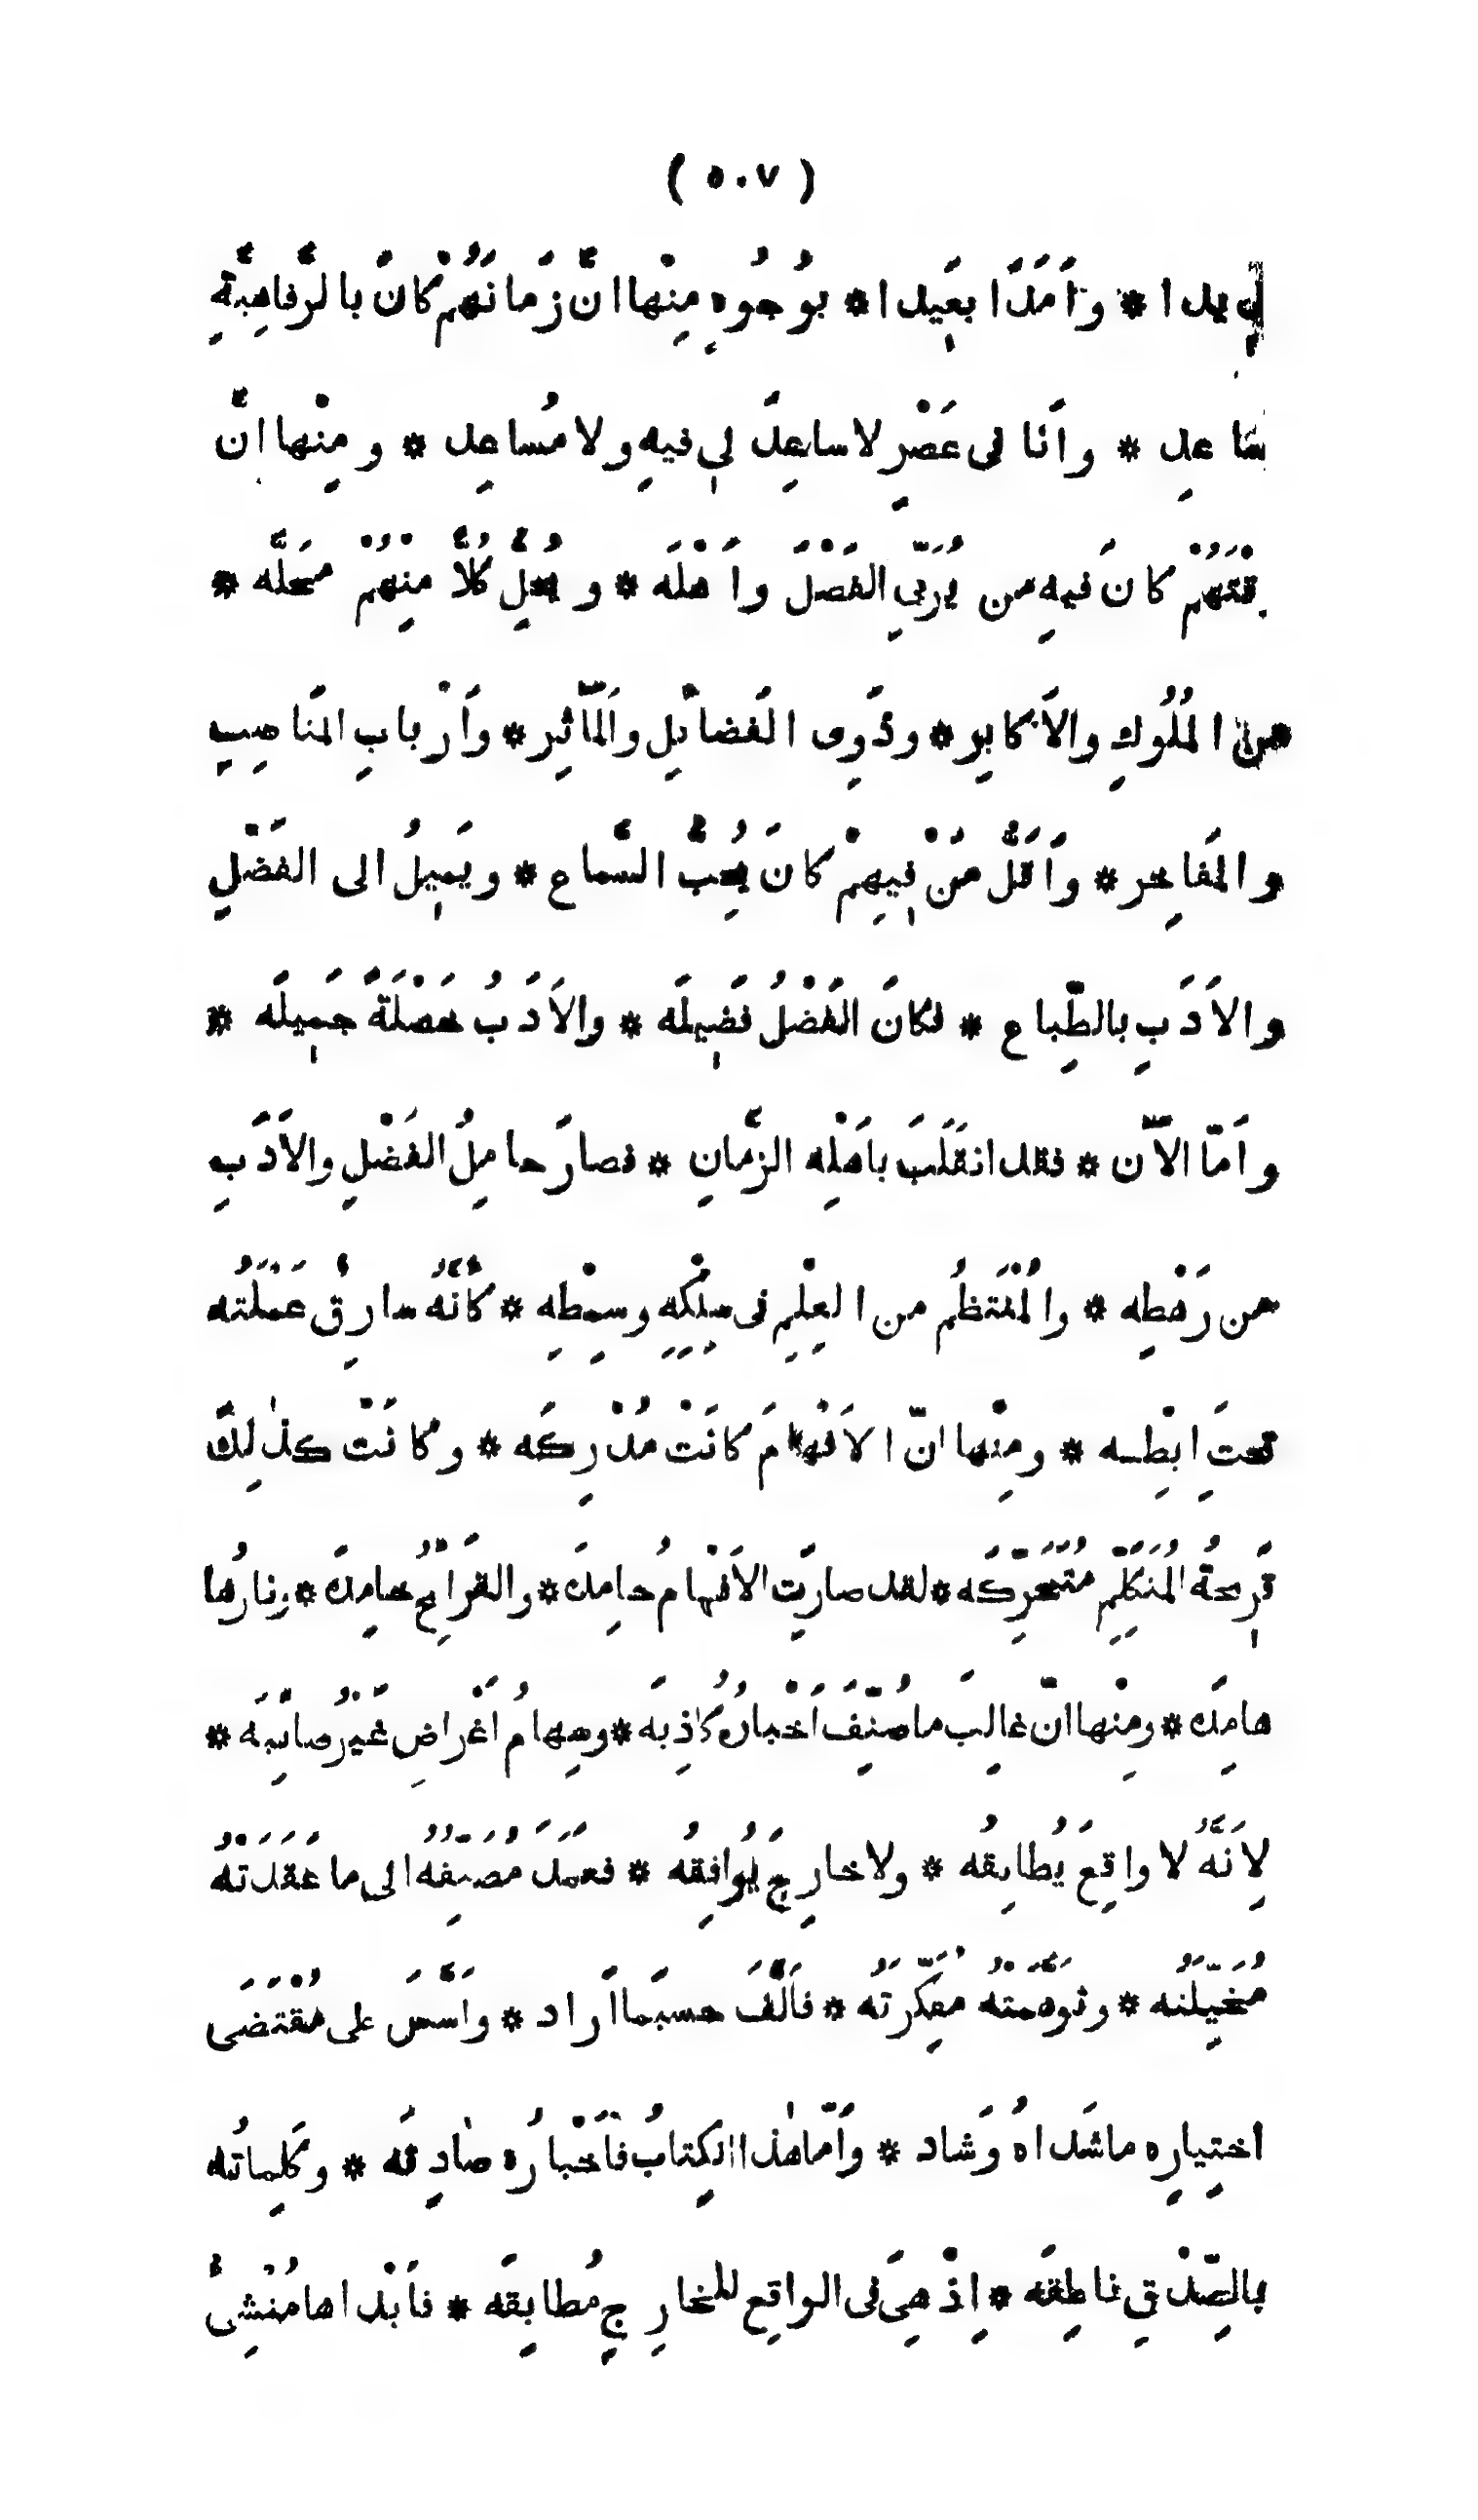 (٥٠٧)
وَاَمَدًا بعِيَدا * بوُجُوهٍ مِنْها انَّ زمَانَهُمْ كانَ بالرَّفاهِيَّةِ
عدِ * وانَا فى عَصْرٍ لا ساعِدَ لِى فيهِ ولا مُساعِد * ومِنْها انَّ
كانَ فيهِ من يُرَبِّى الفَضْلَ واَهْلَه * ويُحِلُّ كُلاًّ مِنْهُمْ مَحَلَّه *
من المُلُوكِ والاَكابِر * وذَوِى الفَضائِل والمَآثِر * وَاَرْبابِ المَناصِبِ
والمَفاخِر * واَقَلُّ مَنْ فِيهِمْ كانَ يُحِبُّ السَّماع * ويَمِيلُ الى الفَضْلِ
والاَدَبِ بالطِّباع * فكانَ الفَضْلُ فَضِيلَه * والاَدَبُ خَصْلَةً جَمِيلَه *
واَمّا الآن * فقد انقَلَبَ باَهْلِه الزَّمانِ * فصارَ حامِلُ الفَضْلِ والاَدَبِ
من رَهْطِه * والمُنْتَظِمُ من العِلْمِ فى سِلْكِهِ وسِمْطِهِ * كأنَّهُ سارِقٌ عَمْلَتَه
تحتَ ابْطِه * ومِنْها انّ الاَفْهامَ كانَتْ مُدْرِكَه * وكانَتْ كذٰلِكَ
قَرِيحةُ المُتَكَلِّمِ مُتَحَرِّكَه * لقد صارَتِ الاَفْهامُ جامِدَه * والقَرائِحُ خامِدَه * ونارُها
هامِدَه * ومِنْها انّ غالِبَ ما صُنِّفَ اَخْبارُهُ كاذِبَه * وسِهامُ اَغْراضِ غَيْرُ صائِبَه *
لِاَنَّهُ لا واقِعَ يُطابِقُه * ولا خارِجَ يُوافِقُه * فعمَدَ مُصَنِّفُهُ الى ما عَقَدَتْهُ
مُخَيِّلَتُه * وتوَهَّمَتْهُ مُفَكِّرَتُه * فاَلَّفَ حسبَما اَراد * واَسَّسَ على مُقْتَضَى
اختِيارِه ما شَداهُ وَشاد * واَمّا هٰذا الكِتابُ فاَخْبارُه صادِقَه * وكَلِماتُه
بالصِّدْقِ ناطِقَه * اِذْ هِىَ فى الواقِع للخارِجِ مُطابِقَه * فاَبْداها مُنْشِئُ